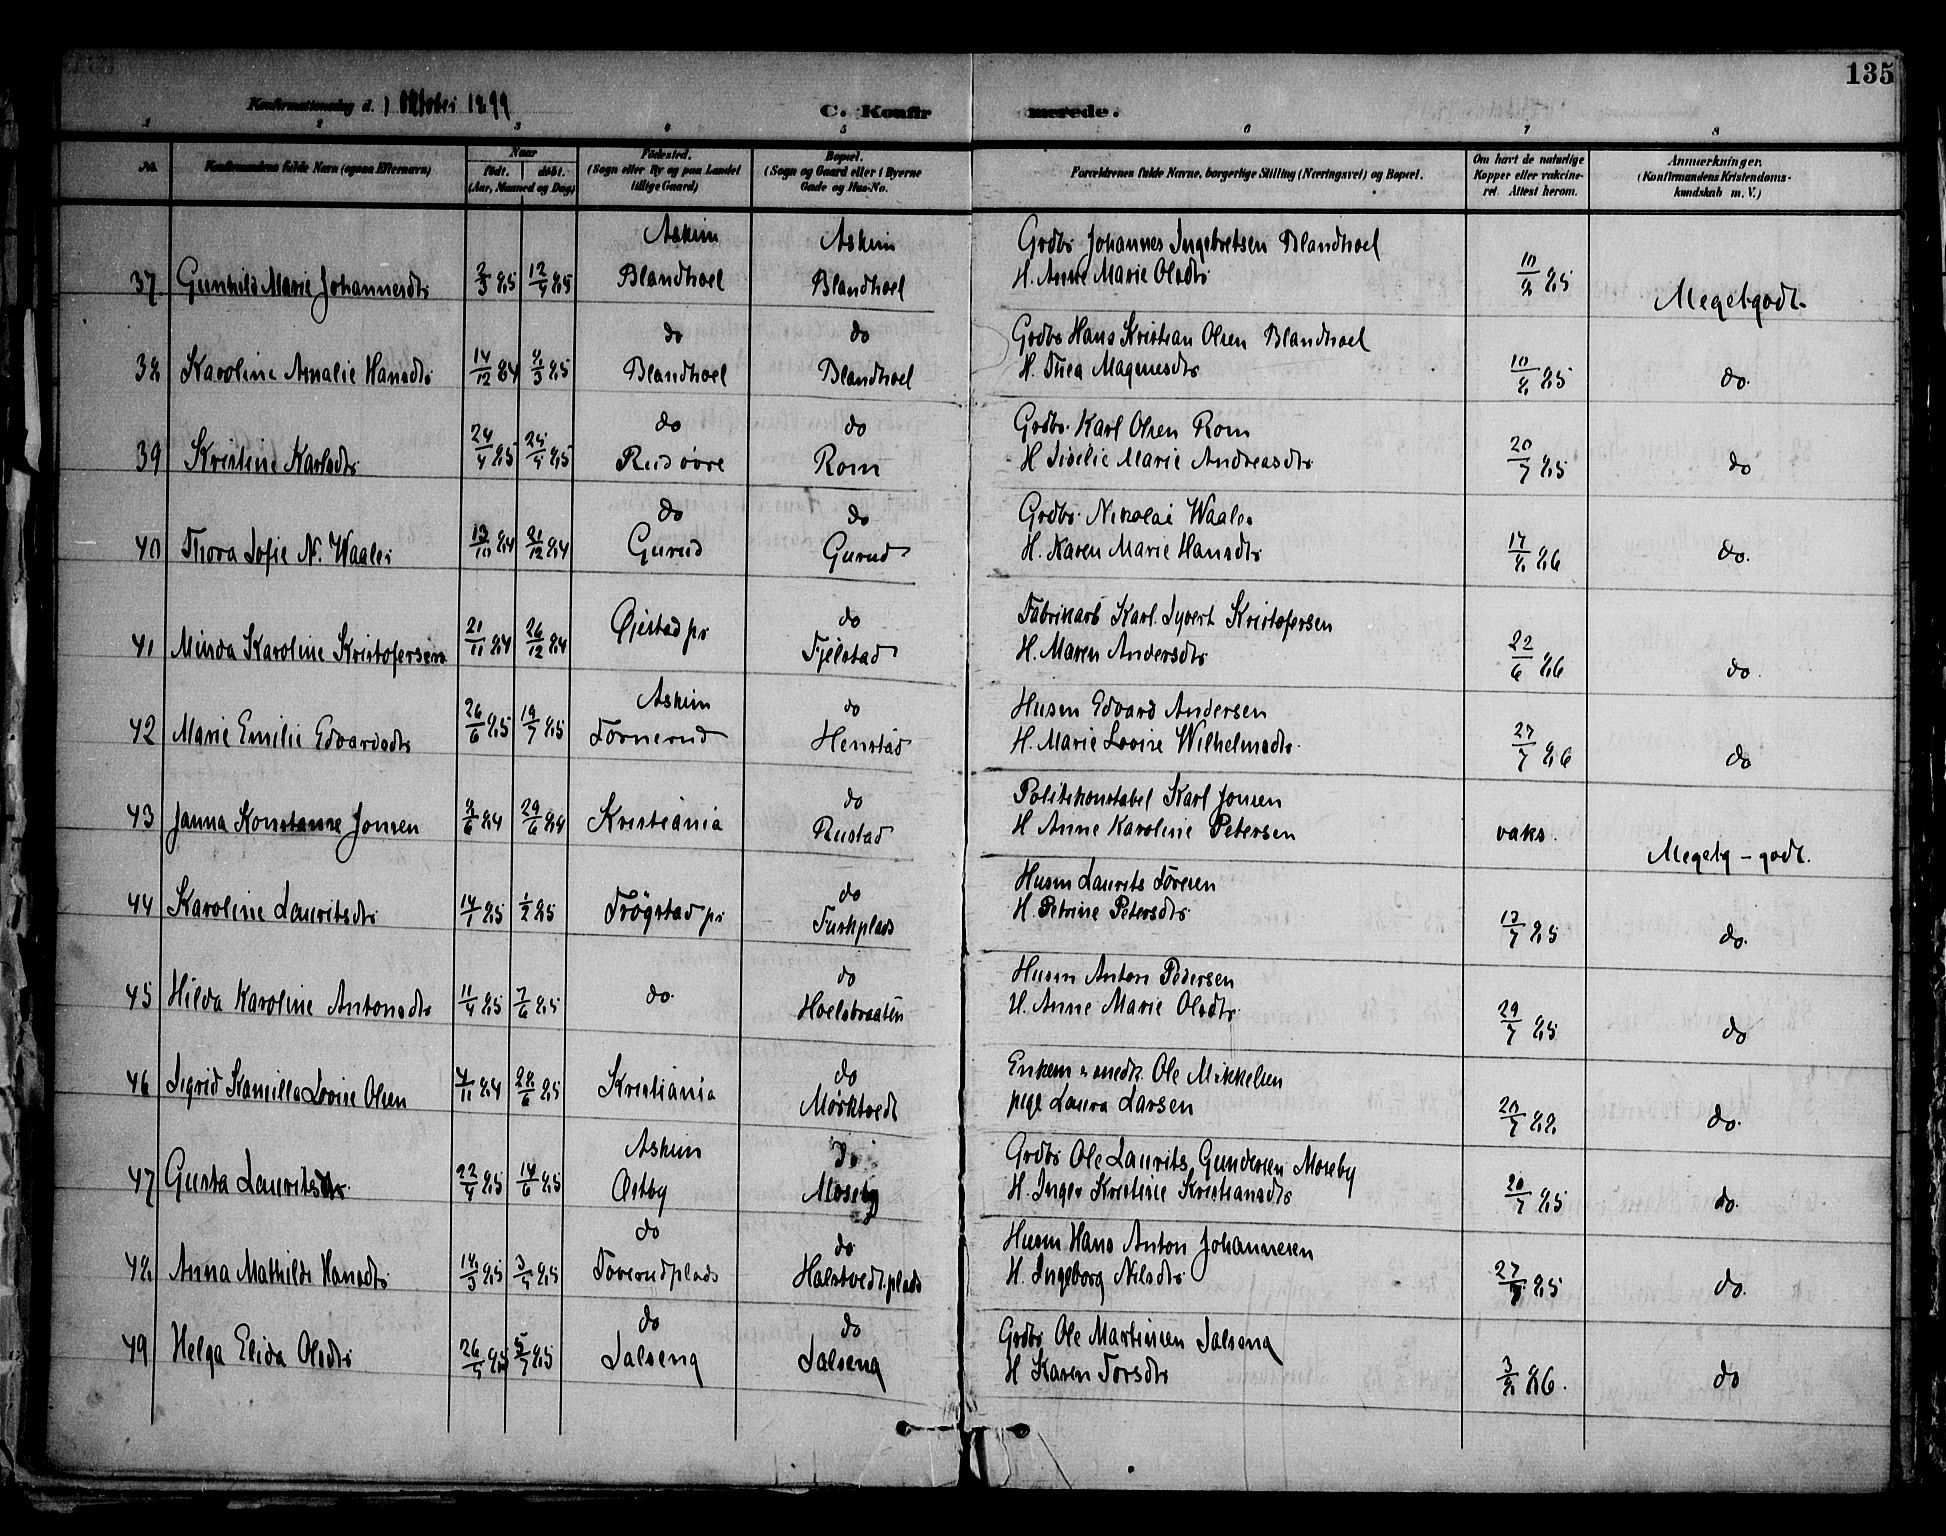 135
Konfirmationsdag d. 1 Oktober 1899
C. Konfirmerede.
1 2 3 4 5 6 7 8
No. Konfirmandens fulde Navn (ogsaa Efternavn) Naar født. døbt. (Aar, Maaned og Dag) Fødested. (Sogn eller By og paa Landet tillige Gaard) Bopæl. (Sogn og Gaard eller i Byerne Gade og Hus-No. Forældrenes fulde Navne, borgerlige Stilling (Næringsvei) og Bopæl. Om havt de naturlige Kopper eller vakcineret. Attest herom. Anmærkninger. (Konfirmandens Kristendomskundskab m. V.)
Askim Askim Grdbr Johannes Ingebretsen Blandhoel
37. Gunhild Marie Johannesdtr 2/3 85 12/4 85 Blandhoel Blandhoel H. Anne Marie Olsdtr 10/8 85 Meget godt.
do do Grdbr Hans Kristian Olsen Blandhoel
38 Karoline Amalie Hansdtr 14/12 84 8/3 85 Blandhoel Blandhoel H. Thea Magnusdtr 10/8 85 do.
do do Grdbr. Karl Olsen Rom
39 Kristine Karlsdtr 24/4 85 25/5 85 Rud øvre Rom H Tisilie Marie Andreasdtr 20/7 85 do
do do Grdbr. Nikolai Waaler
40 Thora Sofie N. Waaler 13/10 84 21/12 84 Gurud Gurud H. Karen Marie Hansdtr 17/8 86 do.
Øiestad pr do Fabrikarb Karl Syvert Kristofersen
41 Minda Karoline Kristofersen 21/11 84 26/12 84 Fjelstad H. Maren Andersdtr 22/6 86 do.
Askim do Husm Edvard Andersen
42 Marie Emilie Edvardsdtr 26/6 85 19/7 85 Tornerud Henstad H. Marie Lovise Wilhelmsdtr. 27/7 86 do
do Politikonstabel Karl Jonsen
43 Janna Konstanse Jonsen 8/6 84 29/6 84 Kristiania Rustad H Anne Karoline Petersen vaks. Megetg - godt.
do Husm Laurits Toresen
44 Karoline Lauritsdtr 14/1 85 1/2 85 Trøgstad pr Turkplads H. Petrine Petersdtr 13/7 85 do.
do Husm Anton Pedersen
45 Hilda Karoline Antonsdtr 11/4 85 7/6 85 do. Hoelsbraaten H. Anne Marie Olsdtr 29/7 85 do
do Enkem snedk. Ole Mikkelsen
46 Sigrid Kamilla Lovise Olsen 4/11 84 28/6 85 Kristiania Mørktvedt pige Laura Larsen 20/7 88 do.
Askim do Grdbr Ole Laurits Gundersen Moseby
47 Gusta Lauritsdtr 22/4 85 14/6 85 Østby Moseby H. Inger Kristine Kristiansdtr 20/7 85 do.
do do Husm Hans Anton Johannesen
48 Anna Mathilde Hansdtr 18/3 85 3/5 85 Toverudplads Halstvedt.plads H. Ingeborg Nilsdtr 27/7 85 do.
do do Grdbr Ole Martinsen Salseng
49 Helga Elida Olsdtr 26/5 85 5/7 85 Salseng Salseng H Karen Torsdtr 3/8 86. do